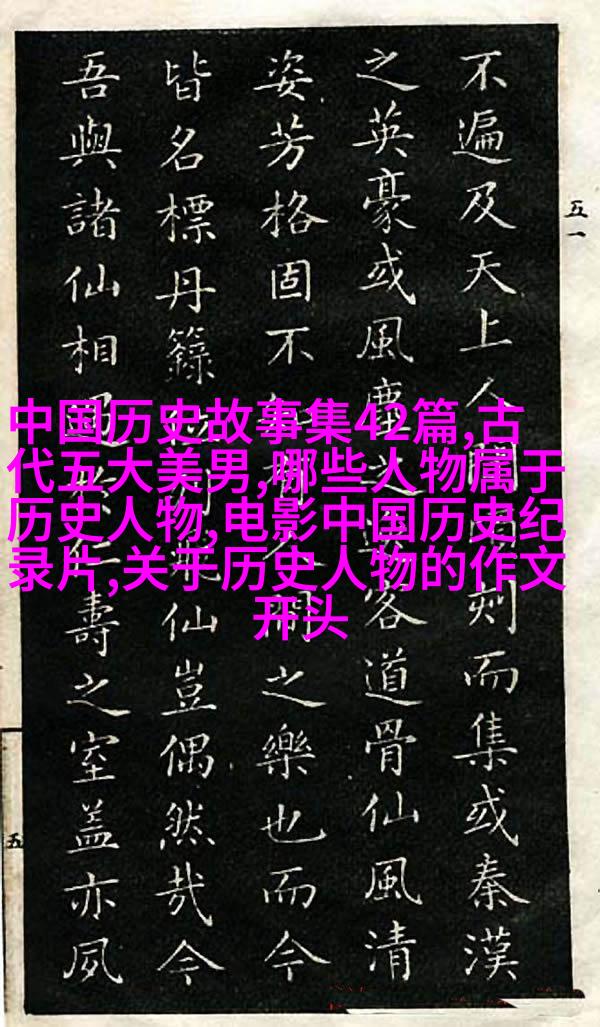 中国历史故事集42篇,古
代五大美男,哪些人物属于
历史人物,电影中国历史纪
录片,关于历史人物的作文
开头
五一
不遍及天上人間刻而集或秦漢
之英豪或風塵之客道骨仙風清
姿芳格固不知有人間之樂也而今
皆名標丹籙位列飛仙豈偶然哉今
吾與諸仙相遇於仁壽之室蓋亦夙
五